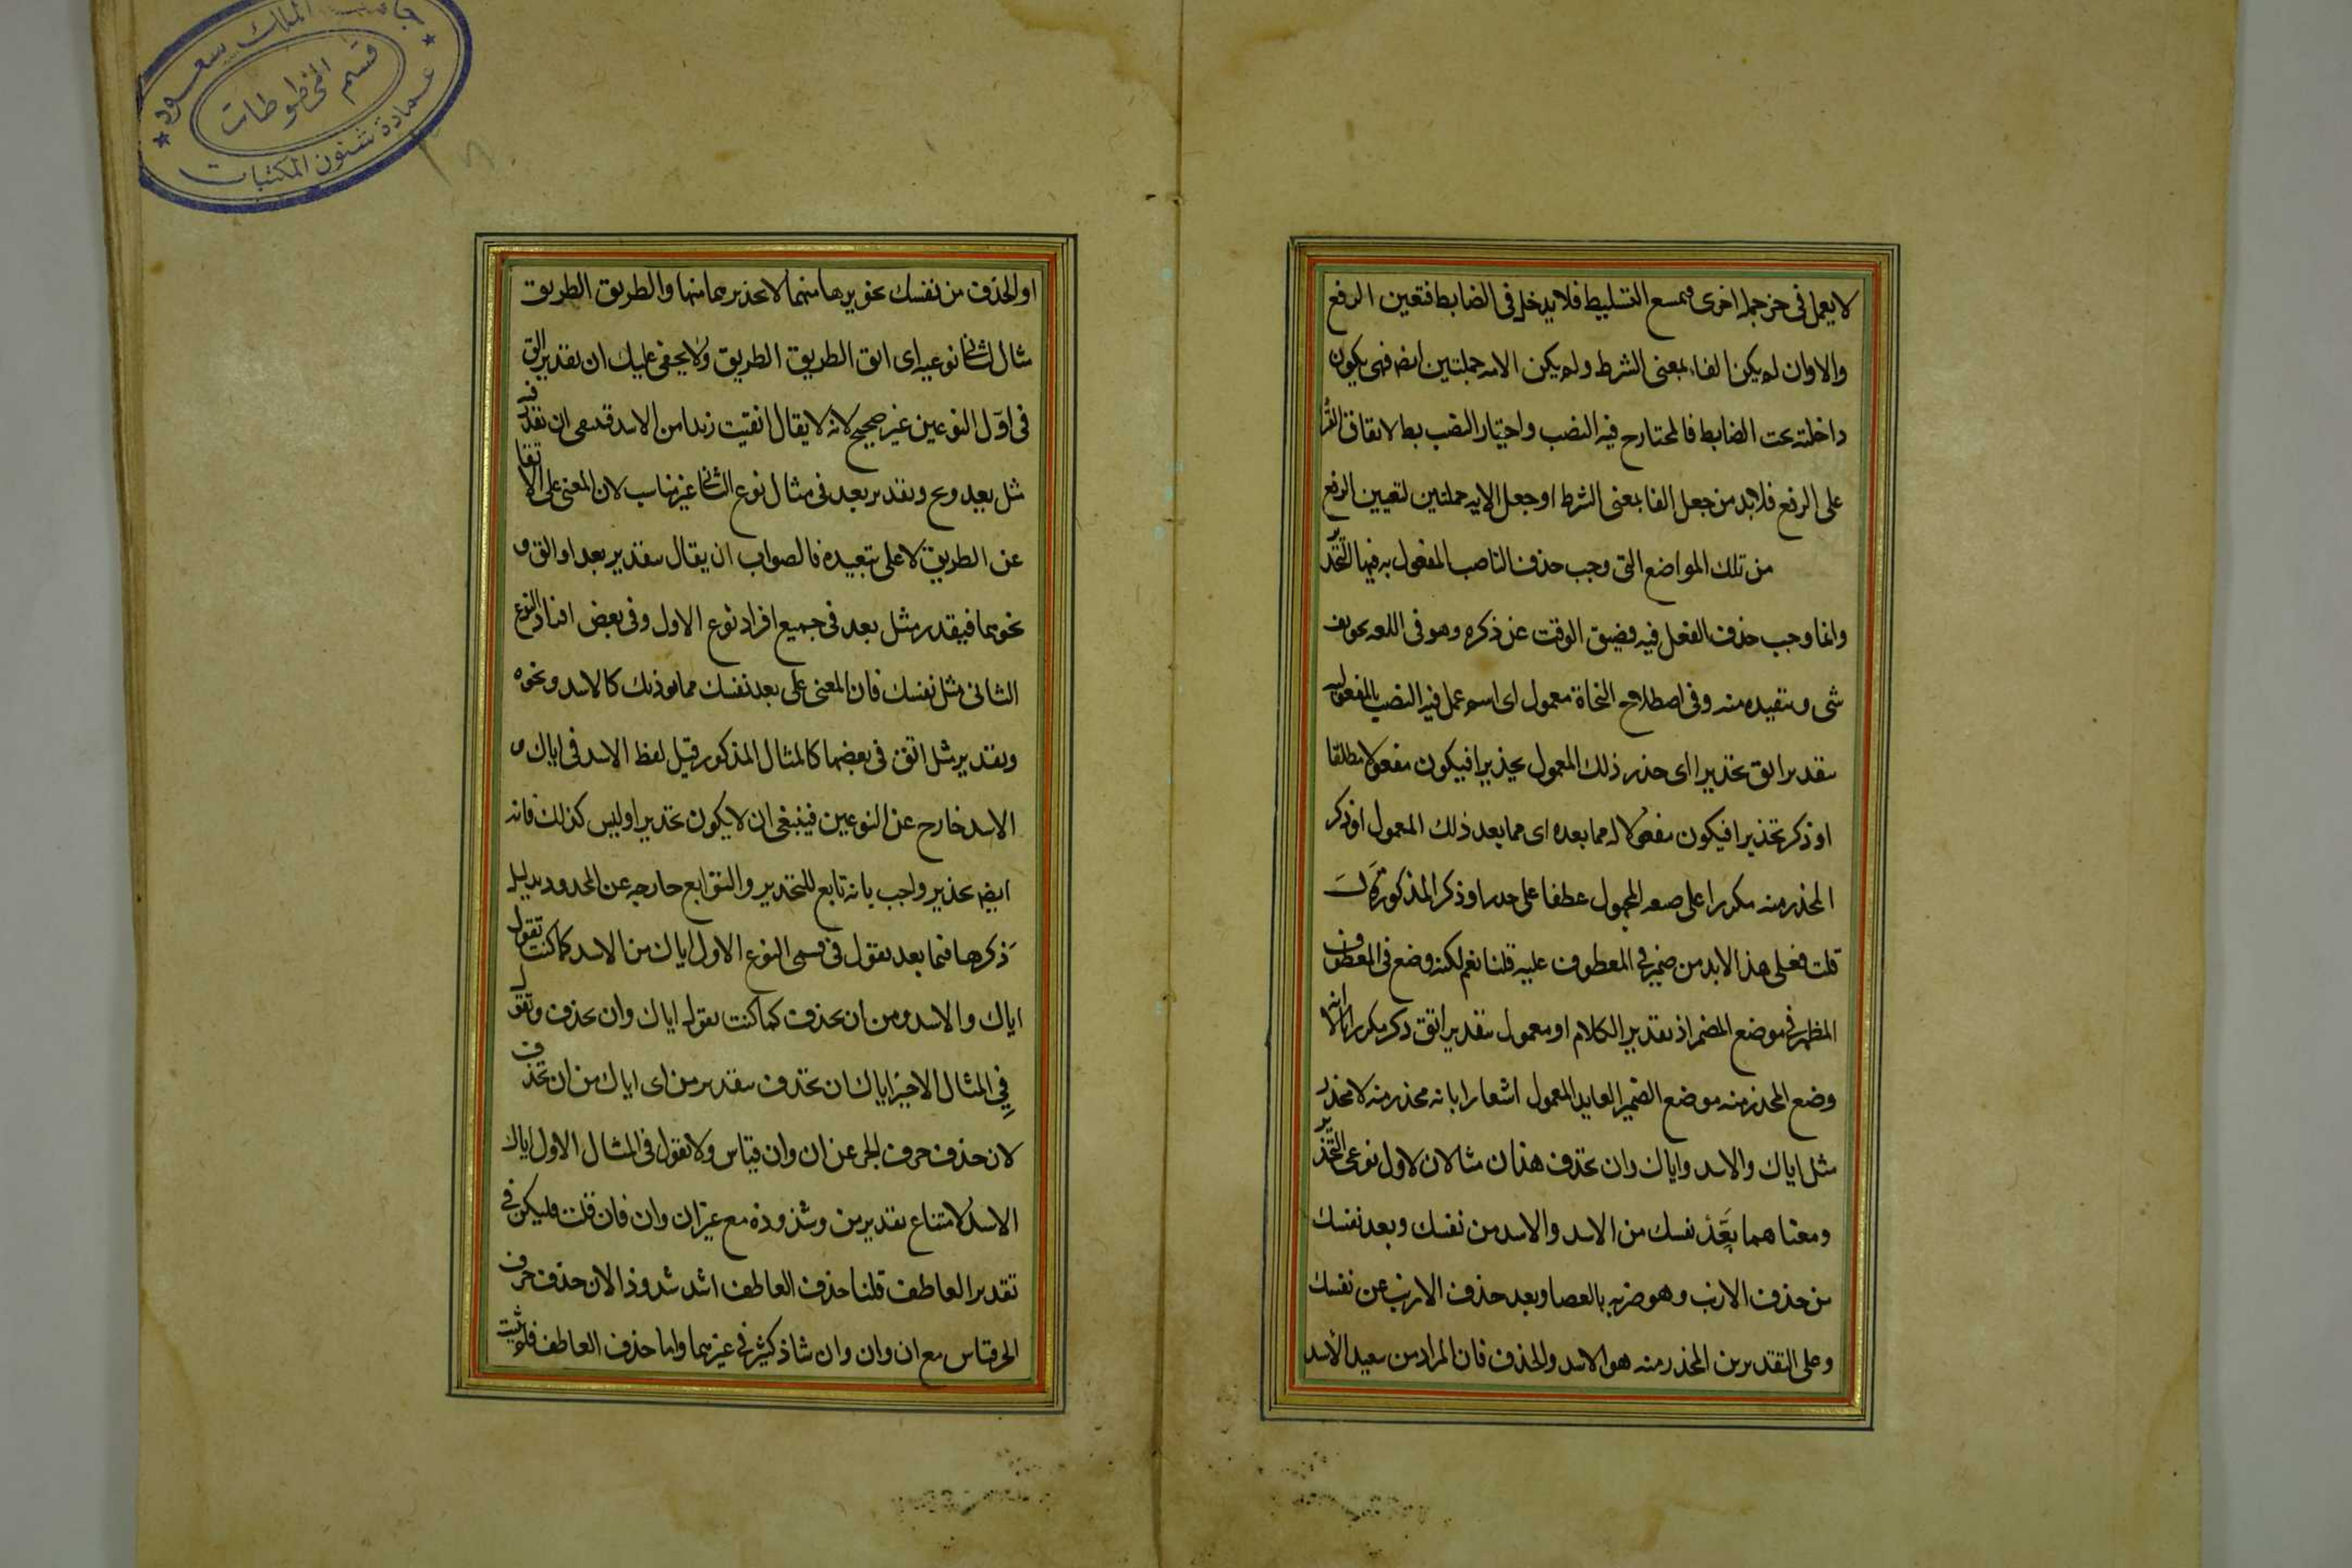 لا يعمل في جزء جملة اخرى فيمتنع التسليط فلا يدخل في الضابط فتعين الرفع
والا وان لم يكن الفاء بمعنى الشرط ولم يكن الايه جملتين ايضه فهى يكون
داخلته تحت الضابط فالمختار ح فيه النصب واختيار النصب بط لاتفاق القرا
على الرفع فلابد من جعل الفا بمعنى الشرط او جعل الايه جملتين لتعيين الرفع
من تلك المواضع التى وجب حذف الناصب المفعول به فيها التحذير
وانما وجب حذف الفعل فيه لضيق الوقت عن ذكره وهو فى اللغه تخويف
شى و تبعيده منه وفى اصطلاح النحاة معمول اى اسم عمل فيه النصب بالمفعوليه
بتقدير اتق تحذيرا اى حذر ذلك المعمول تحذيرا فيكون مفعولا مطلقا
او ذكر تحذيرا فيكون مفعولا له مما بعده اى مما بعد ذلك المعمول او ذكر
المحذر منه مكررا على صيغه المجهول عطفا على حذر او ذكر المذكور
قلت فعلى هذا لابد من ضمير فى المعطوف عليه قلنا نعم لكنه وضع فى المعطوف
المظهر فى موضع المضمر اذ تقدير الكلام او معمول بتقدير اتق ذكر مكررا الا انه
وضع المحذر منه موضع الضمير العايد المعمول اشعارا بانه محذر منه لا محذر
مثل اياك والاسد واياك وان تحذف هذان مثالان لاول نوعى التحذير
ومعناهما بعّد نفسك من الاسد والاسد من نفسك وبعد نفسك
من حذف الارنب وهو ضربه بالعصا وبعد حذف الارنب عن نفسك
وعلى التقديرين المحذر منه هو الاسد والحذف فان المراد من تبعيد الاسد
او الحذف من نفسك تخويفها منهما لا تحذيرهما منها والطريق الطريق
مثال لثانى نوعيه اى اتق الطريق الطريق ولا يخفى عليك ان تقدير اتق
فى اول النوعين غير صحيح لانه لا يقال اتقيت زيدا من الاسد فينبغى ان يقدر فيه
مثل بعد ونح وتقدير بعد فى مثال نوع الثانى غير مناسب لان المعنى على الاتقا
عن الطريق لا على تبعيده فالصواب ان يقال بتقدير بعد او اتق و
نحوهما فيقدر مثل بعد فى جميع افراد نوع الاول وفى بعض افراد النوع
الثانى مثل نفسك فان المعنى على بعد نفسك مما يوذيك كالاسد ونحوه
وتقدير مثل اتق فى بعضها كالمثال المذكور قيل لفظ الاسد فى اياك و
الاسد خارج عن النوعين فينبغى ان لا يكون تحذيرا وليس كذلك فانه
ايضه تحذير واجب بانه تابع للتحذير والتوابع خارجه عن المحدود بدليل
ذكرها فيما بعد تقول فى قسمى النوع الاول اياك من الاسد كما كنت تقول
اياك والاسد ومن ان تحذف كما كنت تقول اياك وان تحذف وتقول
فى المثال الاخير اياك ان تحذف بتقدير من اى اياك من ان تحذف
لان حذف حرف الجر عن ان وان قياس ولا تقول فى المثال الاول اياك
الاسد لامتناع تقدير من وشذوذه مع غير ان وان فان قلت فليكن فى
تقدير العاطف قلنا حذف العاطف اشد شذوذا لان حذف حرف
الجر قياس مع ان وان وان شاذ كثير فى غيرهما واما حذف العاطف فلم يثبت
جامعة الملك سعود
قسم المخطوطات
عمادة شئون المكتبات